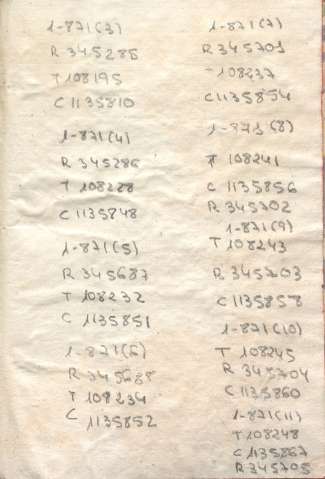 1-871(3)
R 345285
T 108195
C 1135810
1-871(4)
R 345286
T 108228
C 1135848
1-871(5)
R 345687
T 108232
C 1135851
1-871(6)
R 345688
T 108234
C 1135852
1-871(7)
R 345701
T 108237
C 1135854
1-871(8)
T 108241
C 1135856
R 345702
1-871(9)
T 108243
R 345703
C 1135858
1-871(10)
T 108245
R 345704
C 1135860
1-871(11)
T 108248
C 1135867
R 345705